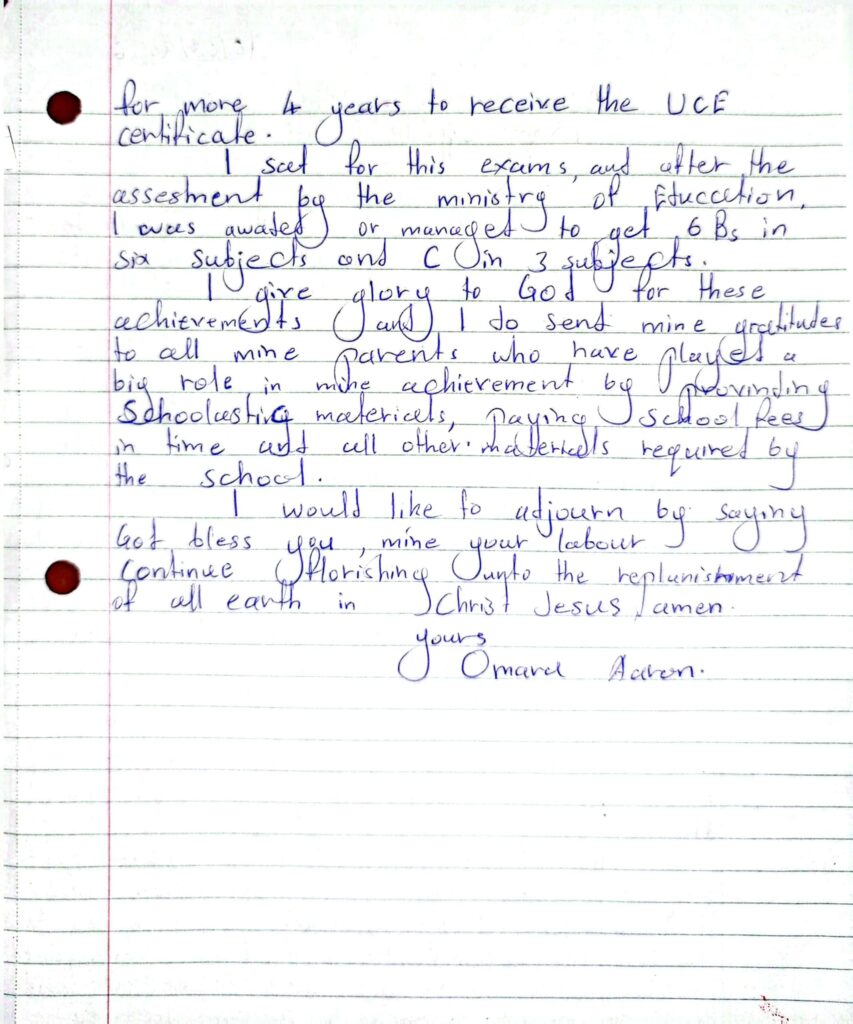 for more 4 years to receive the UCE
certificate.
I sat for this exams, and after the
assesment by the ministry of Education,
I was awated or managed to get 6 Bs in
six subjects and C in 3 subjects.
I give glory to God for these
achievements and I do send mine gratitudes
to all mine parents who have played a
big role in mine achievement by provinding
Schoolastic materials, paying school fees
in time and all other materials required by
the school.
I would like to adjourn by saying
God bless you, mine your labour
continue florishing unto the replunishment
of all earth in Christ Jesus amen.
yours
Omara Aaron.